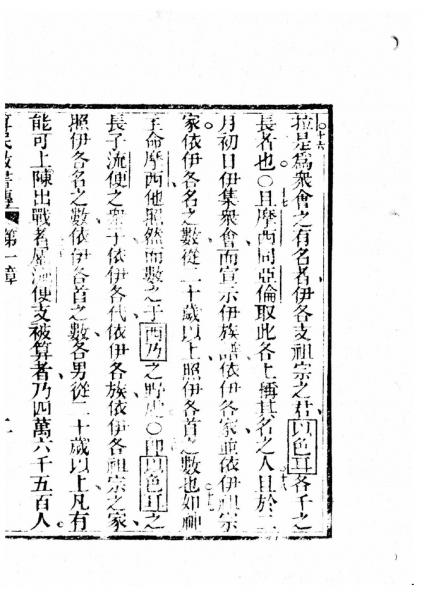 ○十六拉是爲衆會之有名者伊各支祖宗之君以色耳各千之
長者也○十七且摩西同亞倫取此各上稱其名之人十八且於二
月初日伊集衆會而宣示伊族譜依伊各家並依伊祖宗
家依伊各名之數從二十歲以上照伊各首之數也十九如神
主命摩西他照然而數之于西乃之野處○即以色耳之
長子流便之衆子依伊各代依伊各族依伊各祖宗之家
照伊各名之數依伊各首之數各男從二十歲以上凡有
能可上陳出戰者屬流便支被算者乃四萬六千五百人
算民數書傳 第一章